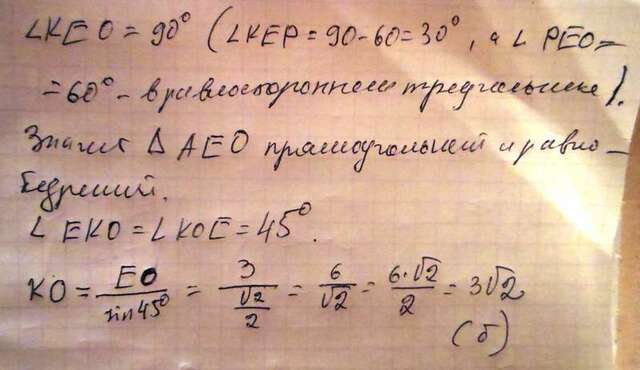 ∠KEO = 90° (∠KEP = 90-60 = 30°, а ∠ PEO =
= 60° - в равностороннем треугольнике).
Значит Δ AEO прямоугольный и равно-
бедренный.
∠ EKO = ∠ KOE = 45°.
KO = EO/sin45° = 3/(√2/2) = 6/√2 = 6·√2/2 = 3√2
(б)